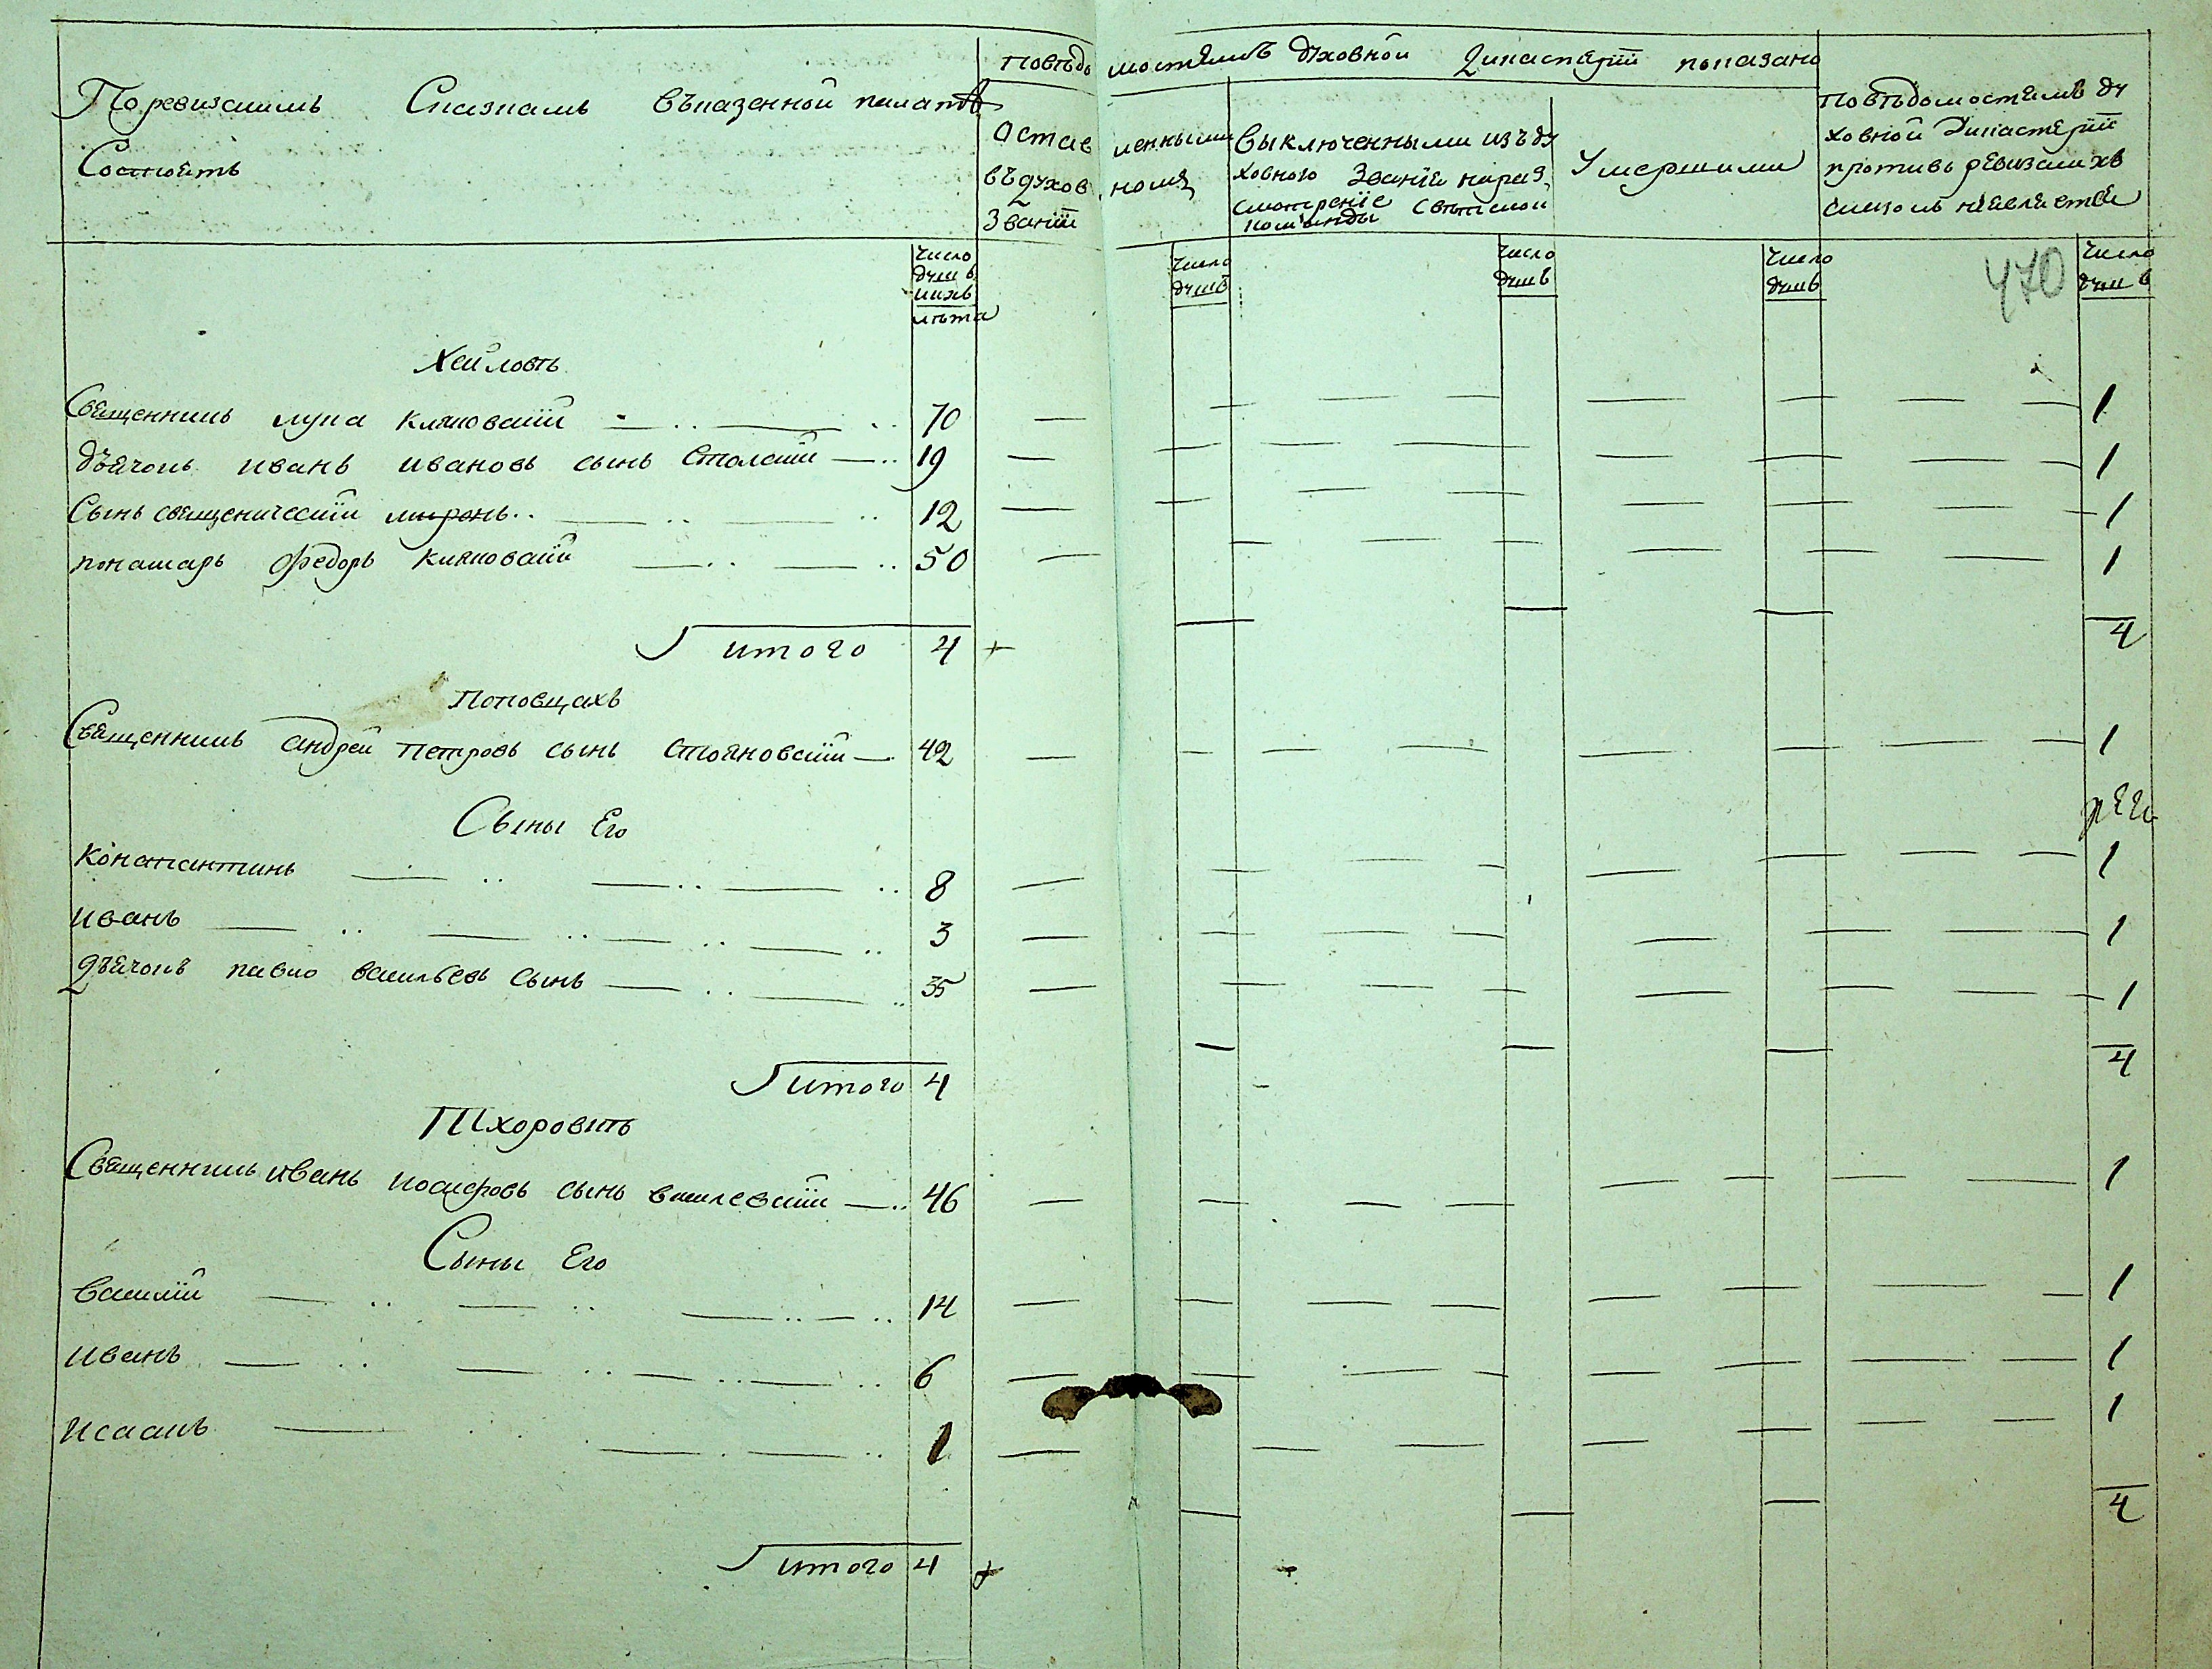 Поревизскимъ Сказкамъ Въказенной палатѣ
Состоитъ
Повѣдомостямъ духовной Дикастерїи показано
Оставленными
въдуховномъ
Званїи
Выключенными изъду
ховного Званїя нараз
смотренїе свѣтской
команды
Умершими
повѣдомостямъ ду
ховной Дикастерїи
противъ ревизскихъ
сказокъ неявляется
Число
душъ
ииxъ
лѣта
Число
душъ
Число
душъ
Число
душъ
Число
душъ
470
Хейловѣ
Священникъ лука Кляковскїй 70 1
дъячокъ иванъ ивановъ сынъ 19 1
Сынъ священическїй миронъ 12 1
понамарь Федоръ Кляковскїй 50 1
итого 4 4
Поповцахъ
Священникъ андрей петровъ сынъ стояновскїй 42 1
Сыны Его
Константинъ 8 1
иванъ 3 1
Дъячокъ павло васильевъ сынъ 35 1
итого 4 4
Тхоровкѣ
Священникъ иванъ иосифовъ сынъ василевскїй 46 1
Сыны Его
василїй 14 1
иванъ 6 1
исаакъ 1 1
4
итого 4